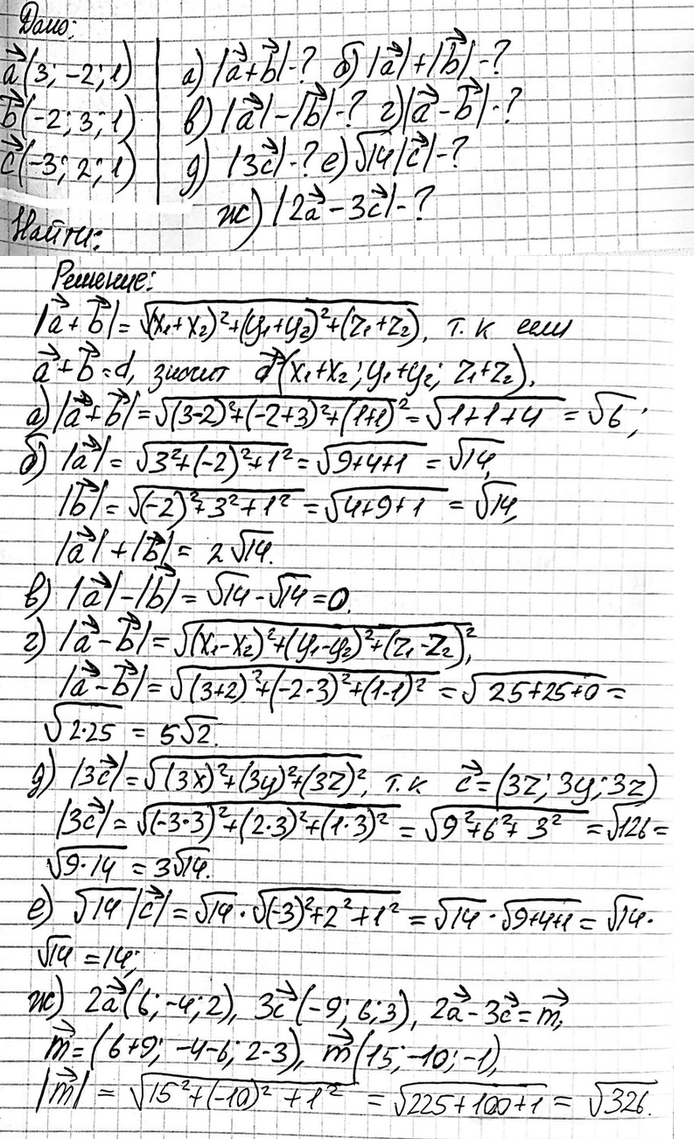 Дано:
a⃗(3; -2; 1) а) |a⃗+b⃗|-? б) |a⃗|+|b⃗|-?
b⃗(-2; 3; 1) в) |a⃗|-|b⃗|-? г) |a⃗-b⃗|-?
c⃗(-3; 2; 1) д) |3c⃗|-? е) √14|c⃗|-?
Найти: ж) |2a⃗-3c⃗|-?
Решение:
|a⃗+b⃗|=√((x₁+x₂)²+(y₁+y₂)²+(z₁+z₂)), т.к если
a⃗+b⃗=d, значит d⃗(x₁+x₂; y₁+y₂; z₁+z₂).
а) |a⃗+b⃗|=√((3-2)²+(-2+3)²+(1+1)²)=√(1+1+4)=√6;
б) |a⃗|=√(3²+(-2)²+1²)=√(9+4+1)=√14,
|b⃗|=√((-2)²+3²+1²)=√(4+9+1)=√14,
|a⃗|+|b⃗|=2√14.
в) |a⃗|-|b⃗|=√14-√14=0.
г) |a⃗-b⃗|=√((x₁-x₂)²+(y₁-y₂)²+(z₁-z₂)²),
|a⃗-b⃗|=√((3+2)²+(-2-3)²+(1-1)²)=√(25+25+0)=
√(2·25)=5√2.
д) |3c⃗|=√((3x)²+(3y)²+(3z)²), т.к c⃗=(3z; 3y; 3z)
|3c⃗|=√((-3·3)²+(2·3)²+(1·3)²)=√(9²+6²+3²)=√126=
√(9·14)=3√14.
е) √14|c⃗|=√14·√((-3)²+2²+1²)=√14·√(9+4+1)=√14·
√14=14;
ж) 2a⃗(6; -4; 2), 3c⃗(-9; 6; 3), 2a⃗-3c⃗=m⃗,
m⃗=(6+9; -4-6; 2-3), m⃗(15; -10; -1),
|m⃗|=√(15²+(-10)²+1²)=√(225+100+1)=√326.